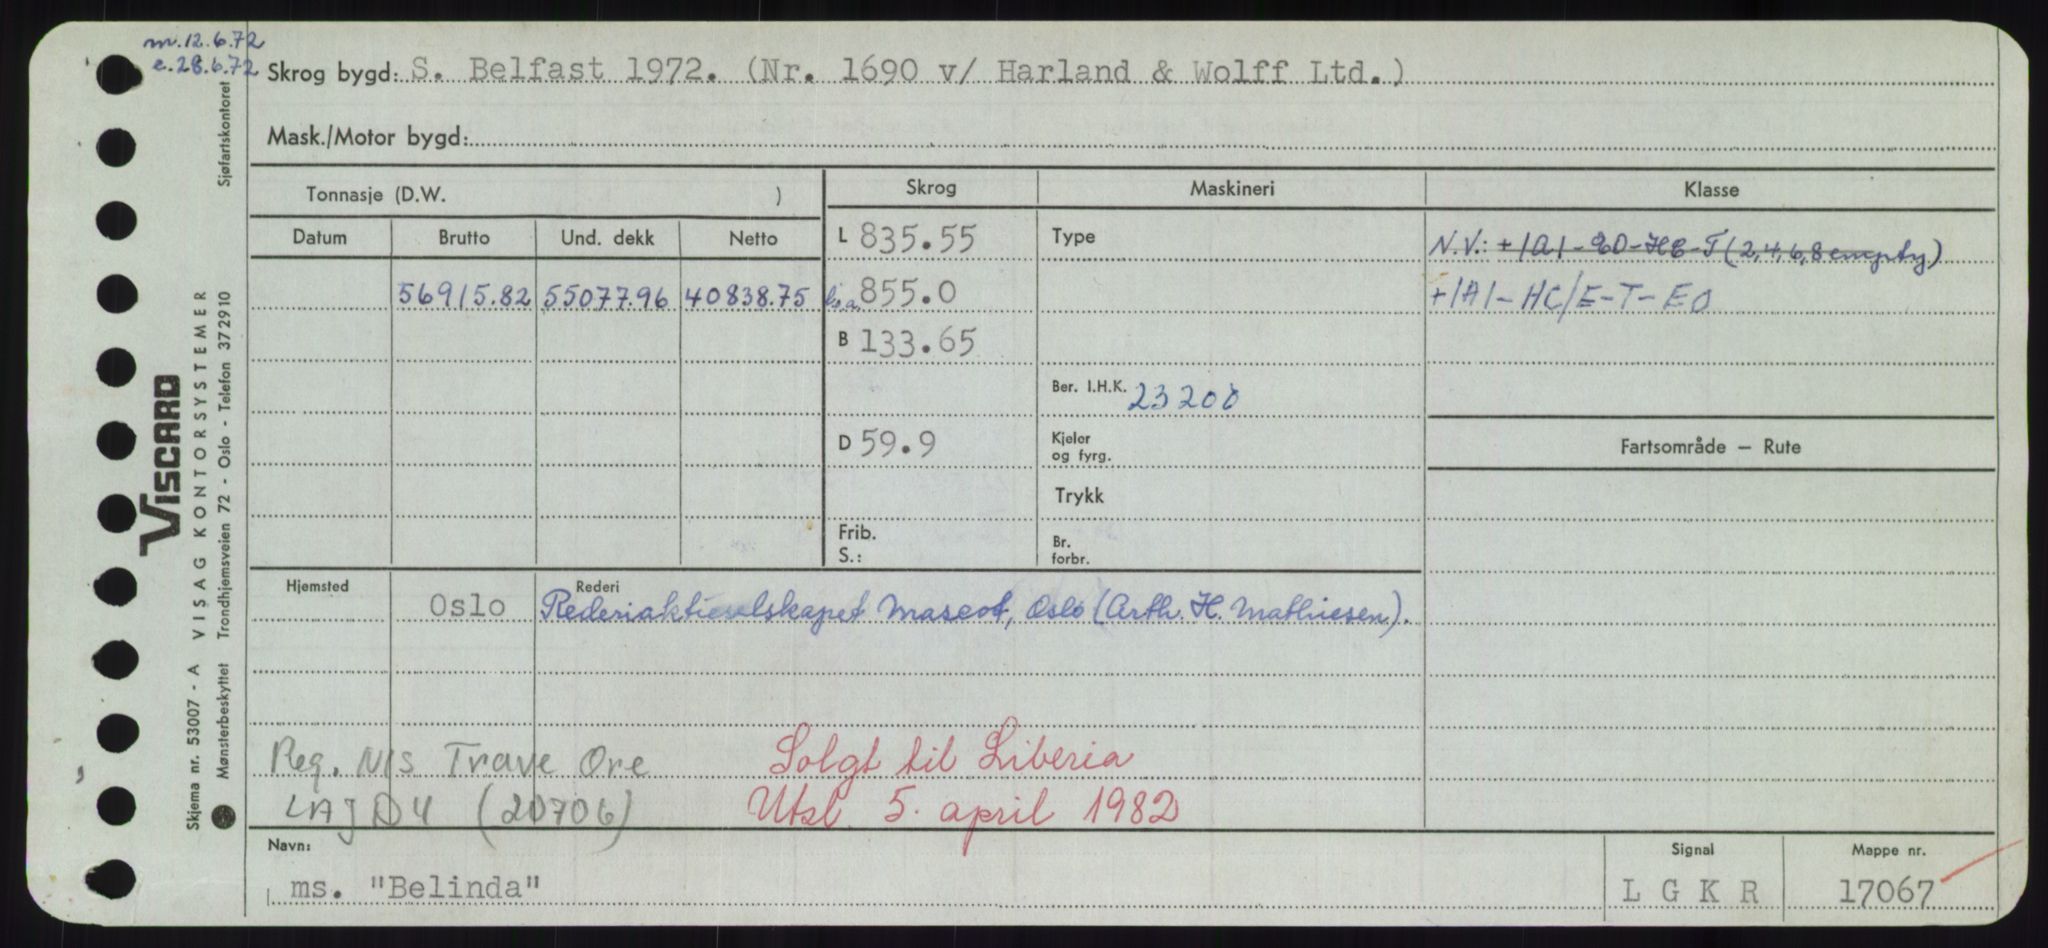 m. 12.6.72
e. 28.6.72
Skrog bygd: S. Belfast 1972. (Nr. 1690 v/ Harland & Wolff Ltd.)
Mask./Motor bygd:
Tonnasje (D.W. )
Skrog
Maskineri
Klasse
Datum Brutto Und. dekk Netto
L 835.55
Type
N.V.: +1A1-EO-HC-T (2,4,6,8 empty)
56915.82 55077.96 40838.75
l.o.a. 855.0
+1A1-HC/E-T-EO
B 133.65
Ber. I.H.K. 23200
D 59.9
Kjeler
og fyrg.
Fartsområde — Rute
Trykk
Frib.
S.:
Br.
forbr.
Hjemsted Oslo
Rederi
Rederiaktieselskapet Mascot, Oslo (Arth. H. Mathiesen).
Reg. NIS Trave Ore
Solgt til Liberia
LAJD4 (20706)
Utsl. 5. april 1982
Navn:
ms. "Belinda"
Signal
L G K R
Mappe nr.
17067
VISCARD
Skjema nr. 53007 - A VISAG KONTORSYSTEMER
Mønsterbeskyttet Trondhjemsveien 72 - Oslo - Telefon 372910 Sjøfartskontoret